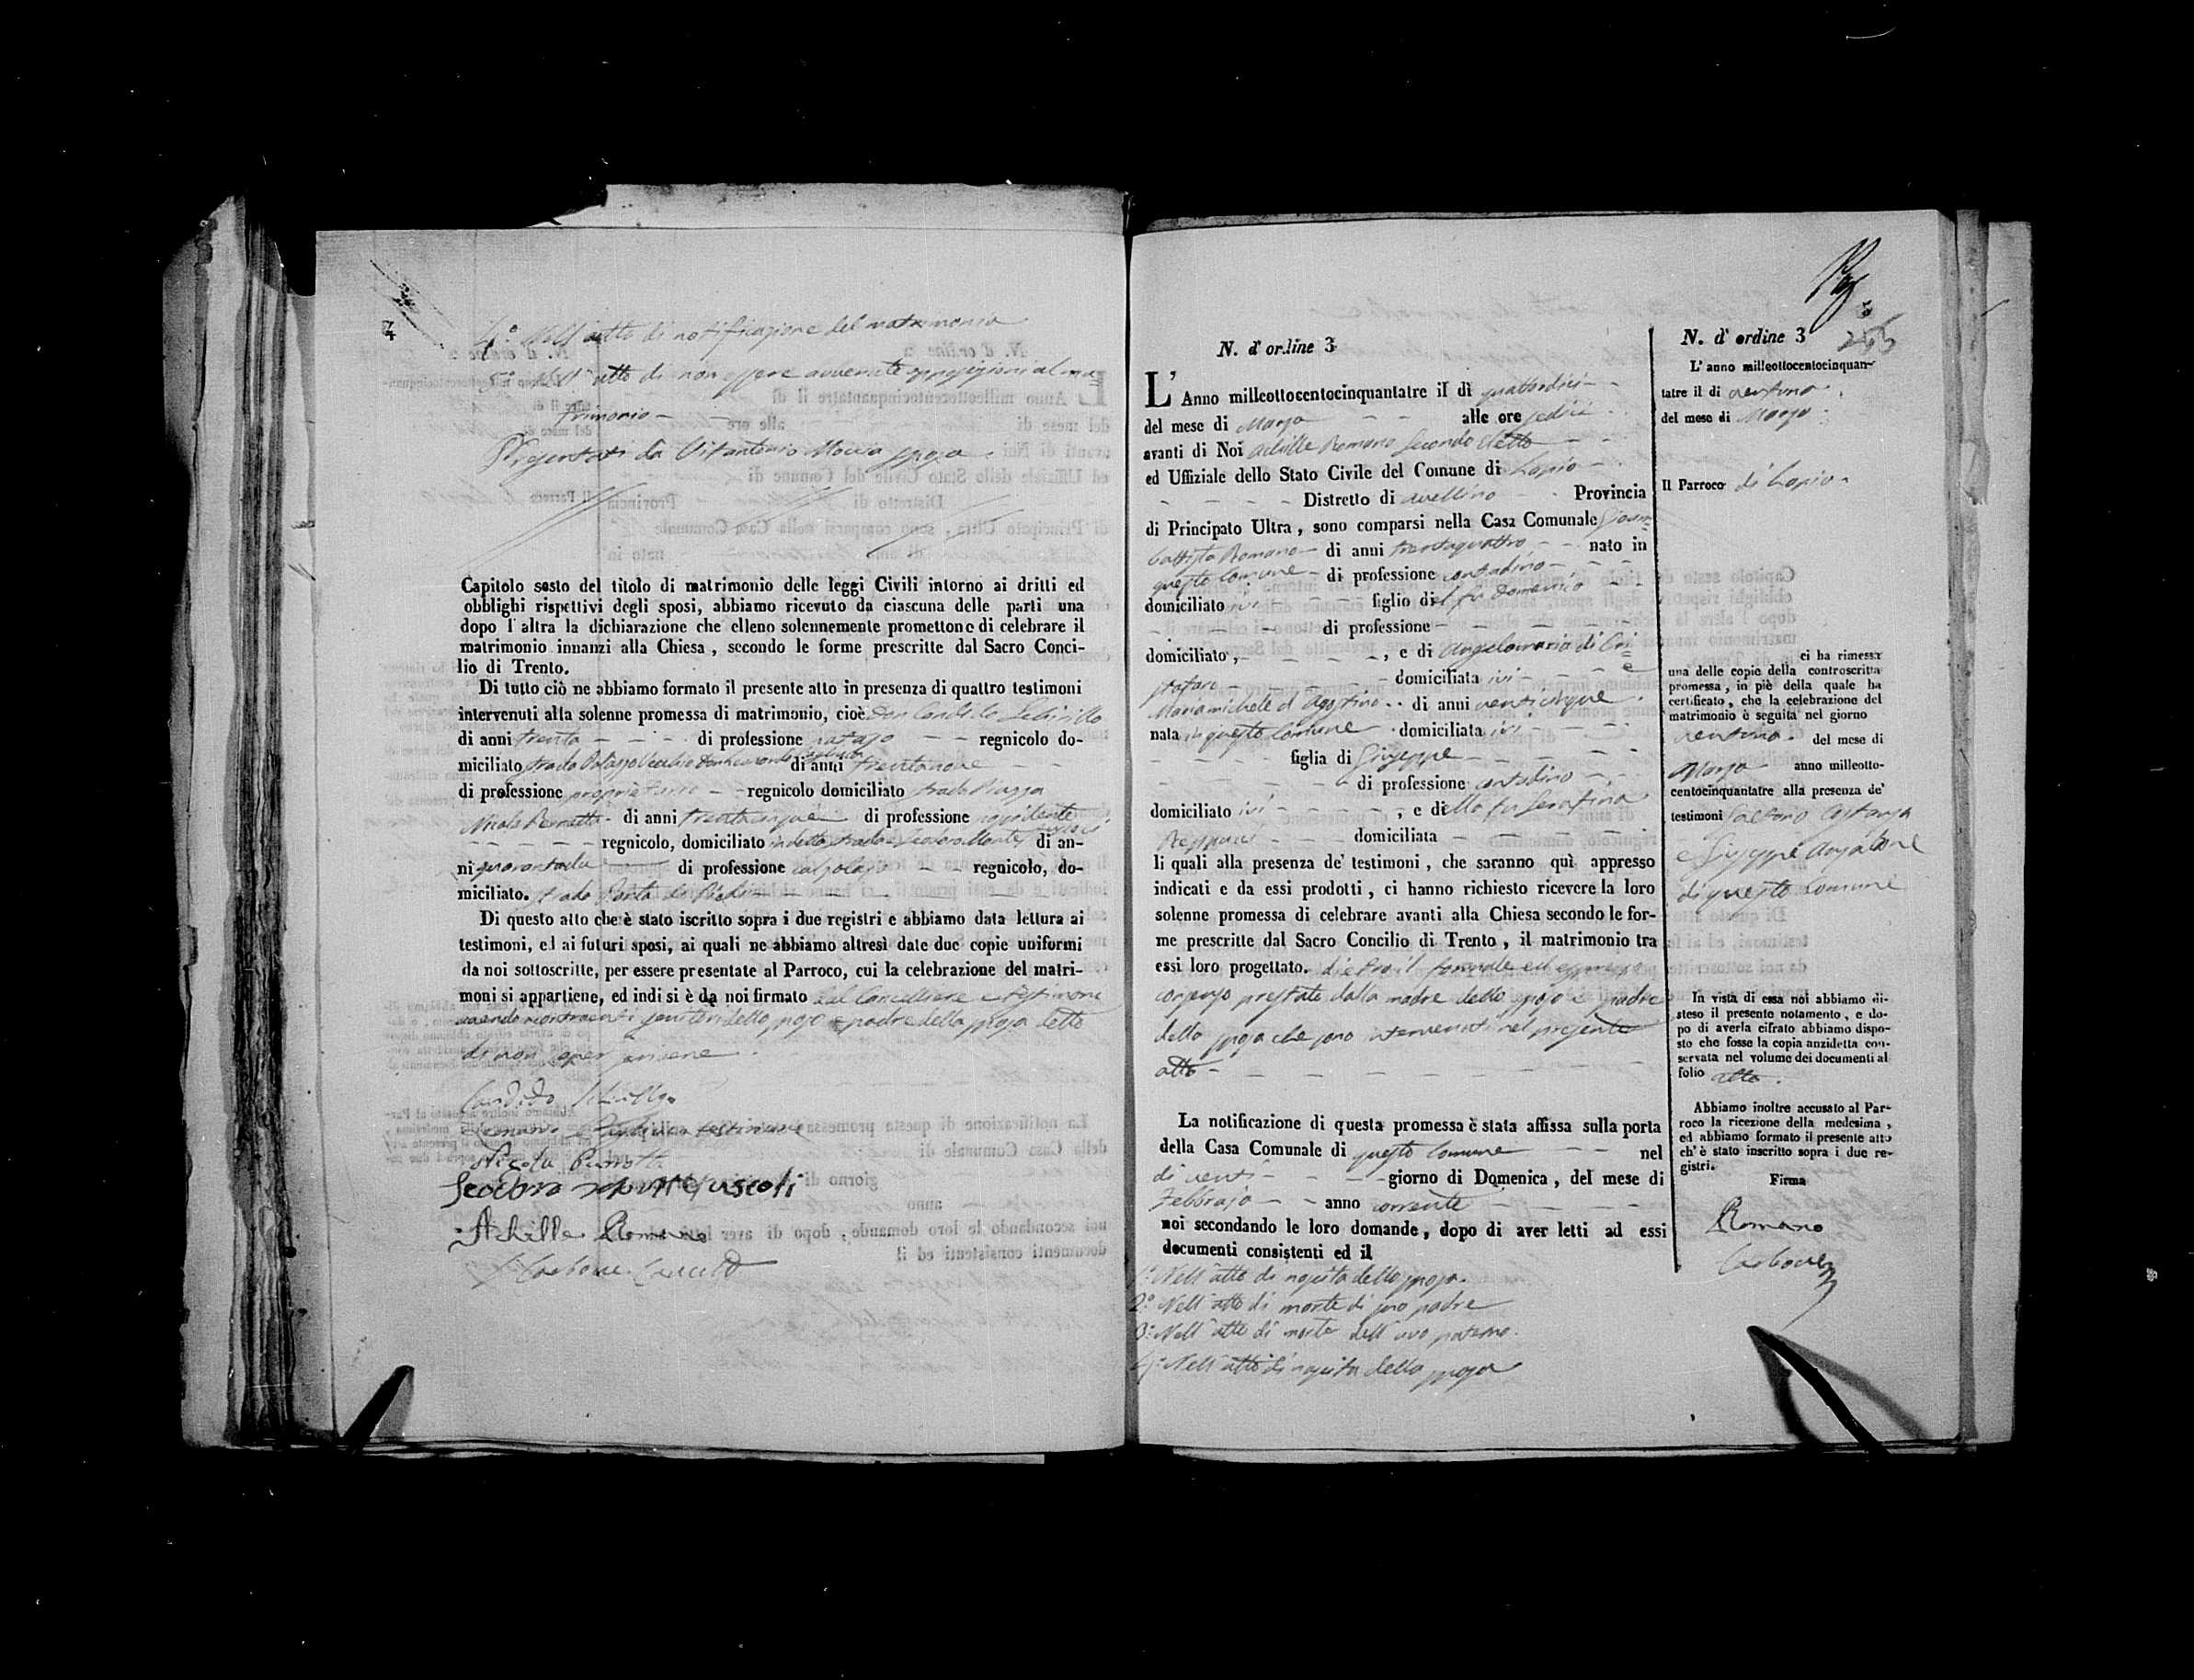 4
4° Nell'atto di notificazione del matrimonio
5° Nell'atto di non essere avvenute opposizioni al ma=
trimonio
Presentati da Vitantonio Moccia sposo
Capitolo sesto del titolo di matrimonio delle leggi Civili intorno ai dritti ed
obblighi rispettivi degli sposi, abbiamo ricevuto da ciascuna delle parti una
dopo l'altra la dichiarazione che elleno solennemente promettono di celebrare il
matrimonio innanzi alla Chiesa, secondo le forme prescritte dal Sacro Conci-
lio di Trento.
Di tutto ciò ne abbiamo formato il presente atto in presenza di quattro testimoni
intervenuti alla solenne promessa di matrimonio, cioè Don Candido
di anni trenta di professione regnicolo do-
miciliato strada Palazzo Vecchio di anni trentanove
di professione proprietario regnicolo domiciliato strada Piazza
Nicola di anni trentacinque di professione
regnicolo, domiciliato in detta strada di an-
ni di professione calzolajo regnicolo, do-
miciliato. strada Porta
Di questo atto che è stato iscritto sopra i due registri e abbiamo data lettura ai
testimoni, ed ai futuri sposi, ai quali ne abbiamo altresì date due copie uniformi
da noi sottoscritte, per essere presentate al Parroco, cui la celebrazione del matri-
moni si appartiene, ed indi si è da noi firmato dal Cancelliere e testimoni
avendo i contraenti genitori dello sposo e padre della sposa detto
di non saper scrivere.
Candido
Nicola
Achille Romano
Carbone
N. d'ordine 3
L'Anno millottocentocinquantatre il dì quattordici
del mese di Marzo alle ore sedici
avanti di Noi Achille Romano Secondo Eletto
ed Uffiziale dello Stato Civile del Comune di Lapio
Distretto di Avellino Provincia
di Principato Ultra, sono comparsi nella Casa Comunale Giam=
battista Romano di anni trentaquattro nato in
questo Comune di professione contadino
domiciliato ivi figlio del fu Domenico
di professione
domiciliato, , e di Angelamaria di Cri=
stofaro domiciliata ivi e
Mariamichele d'Agostino di anni venticinque
nata in questo Comune domiciliata ivi
figlia di Giuseppe
di professione contadino
domiciliato ivi , e della fu Serafina
domiciliata
li quali alla presenza de' testimoni, che saranno quì appresso
indicati e da essi prodotti, ci hanno richiesto ricevere la loro
solenne promessa di celebrare avanti alla Chiesa secondo le for-
me prescritte dal Sacro Concilio di Trento, il matrimonio tra
essi loro progettato. dietro il formale ed espresso
consenso prestato dalla madre dello sposo e padre
della sposa che sono intervenuti nel presente
atto
La notificazione di questa promessa è stata affissa sulla porta
della Casa Comunale di questo Comune nel
dì venti giorno di Domenica, del mese di
Febbrajo anno corrente
noi secondando le loro domande, dopo di aver letti ad essi
documenti consistenti ed il
1° Nell'atto di nascita dello sposo.
2° Nell'atto di morte di suo padre
3° Nell'atto di morte dell'avo paterno.
4° Nell'atto di nascita della sposa
N. d'ordine 3
L'anno milleottocentocinquan-
tatre il dì ventuno
del mese di Marzo
Il Parroco di Lapio
ci ha rimessa
una delle copie della controscritta
promessa, in piè della quale ha
certificato, che la celebrazione del
matrimonio è seguita nel giorno
ventuno del mese di
Marzo anno milleotto-
centocinquantatre alla presenza de'
testimoni
e Giuseppe
di questo Comune
In vista di essa noi abbiamo di-
steso il presente notamento, e do-
po di averla cifrato abbiamo dispo-
sto che fosse la copia anzidetta con-
servata nel volume dei documenti al
folio
Abbiamo inoltre accusato al Par-
roco la ricezione della medesima,
ed abbiamo formato il presente atto
ch'è stato inscritto sopra i due re-
gistri.
Firma
Romano
Carbone